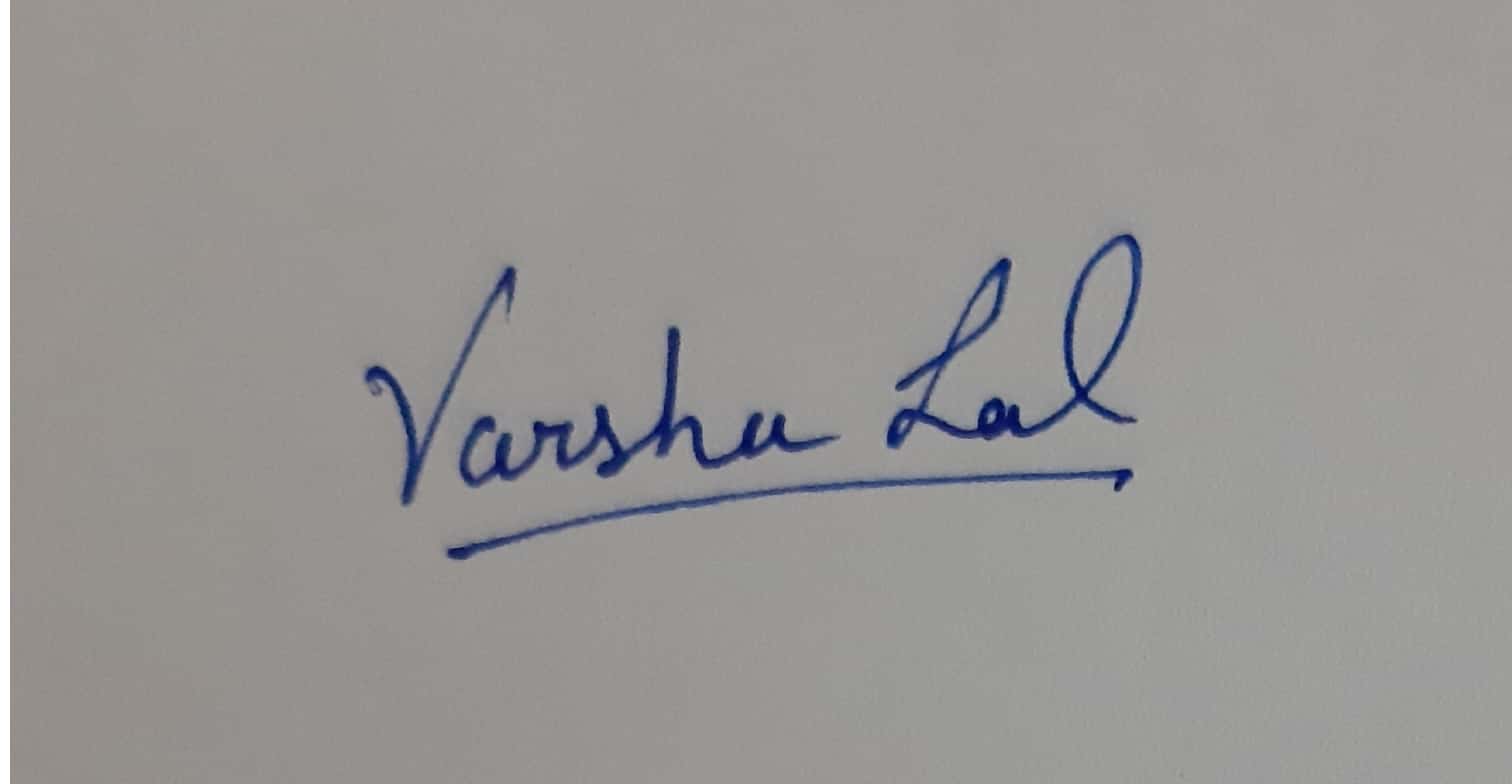 Varsha Lal